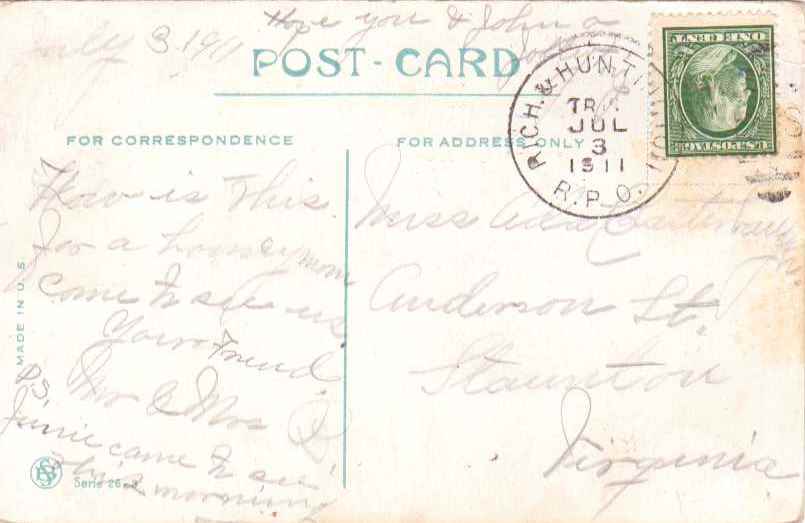 July 3-1911
Hope you & John a
POST-CARD
FOR CORRESPONDENCE
FOR ADDRESS ONLY
RICH. & HUNT
TR
JUL
3
1911
R.P.O.
U.S. POSTAGE
ONE CENT
How is This
for a honeymoon
come to see us
Your Friend
Mr & Mrs
P.S.
came to see
this morning
Miss
Anderson St.
Staunton
Virginia
MADE IN U.S.
Serie 26